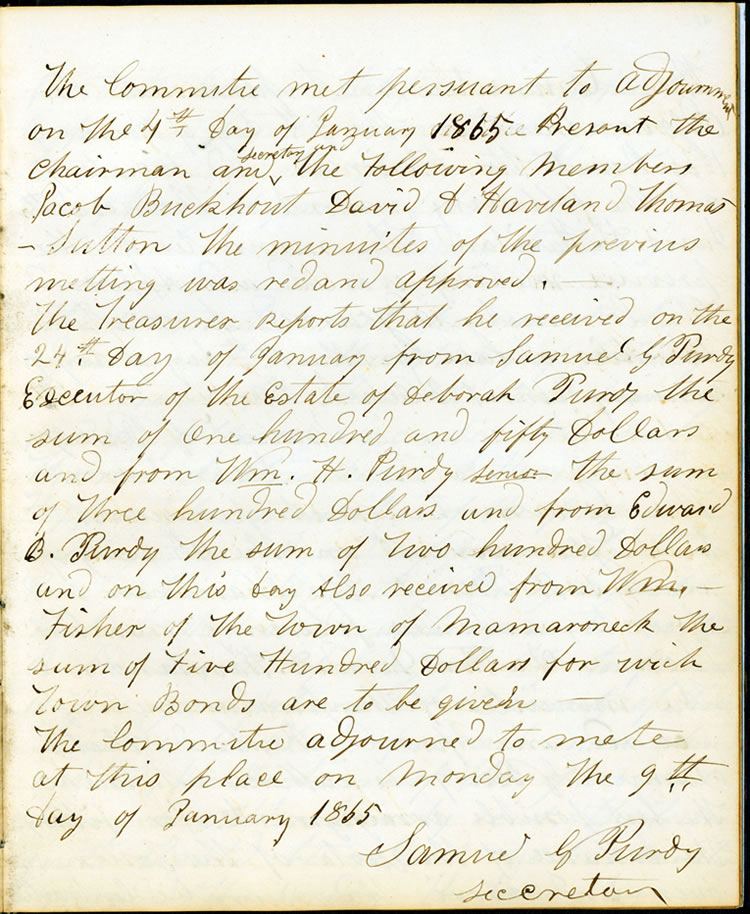 The Committie met persuant to adjournment
on the 4th Day of January 1865 Present the
Chairman and secretary and the following members
Jacob Buckhout David D Haviland Thomas
- Sutton the minuites of the previus
metting was red and approved. —
The Treasurer reports that he received on the
24th Day of January from Samuel G Purdy
Executor of the Estate of Deborah Purdy the
sum of One hundred and fifty Dollars
and from Wm. H. Purdy senior the sum
of three hundred Dollars and from Edward
B. Purdy the sum of two hundred Dollars
and on this day also received from Wm. -
Fisher of the Town of Mamaroneck the
sum of Five Hundred Dollars for wich
Town Bonds are to be given —
The Committie adjourned to mete
at this place on Monday the 9th
Day of January 1865
Samuel G Purdy
seccretary